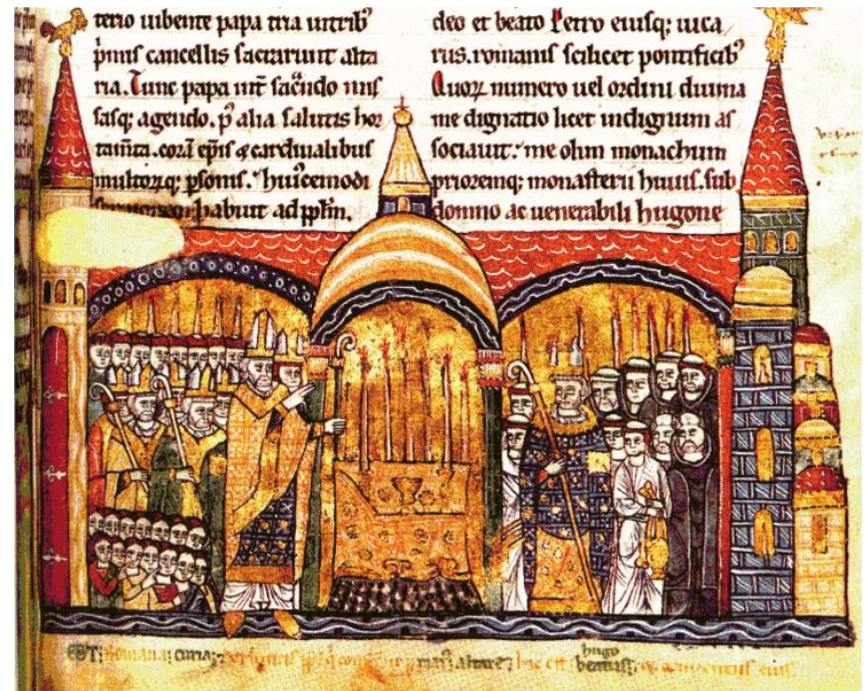 terio iubente papa tria in tribꝰ
pͥmis cancellis sacrarunt alta
ria. Tunc papa int̄ sac̄ndo mis
sasq; agendo. p̄ alia salutis hor
tam̄ta. corā ep̄is & cardinalibus
multorꝫq; p̄sonis. huiꝰcemodi
habuit ad pp̄lm.
deo et beato Petro eiusq; uica
riis. romanis scilicet pontificibꝰ
Quoꝝ numero uel ordini diuina
me dignatio licet indignum as
sociauit. me olim monachum
prioremq; monasterii huius. sub
domno ac uenerabili hugone
hugo
romana curia altare hic est conuentus eius.